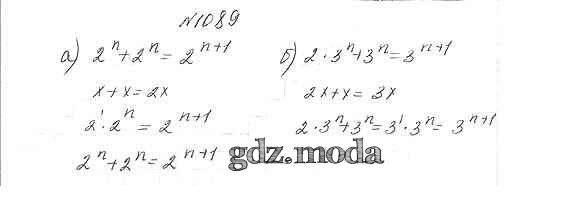 №1089
а) 2ⁿ+2ⁿ=2ⁿ⁺¹
x+x=2x
2¹·2ⁿ=2ⁿ⁺¹
2ⁿ+2ⁿ=2ⁿ⁺¹
б) 2·3ⁿ+3ⁿ=3ⁿ⁺¹
2x+x=3x
2·3ⁿ+3ⁿ=3¹·3ⁿ=3ⁿ⁺¹
gdz.moda